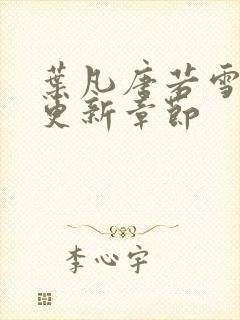 葉凡唐若雪
更新章節
李心宇